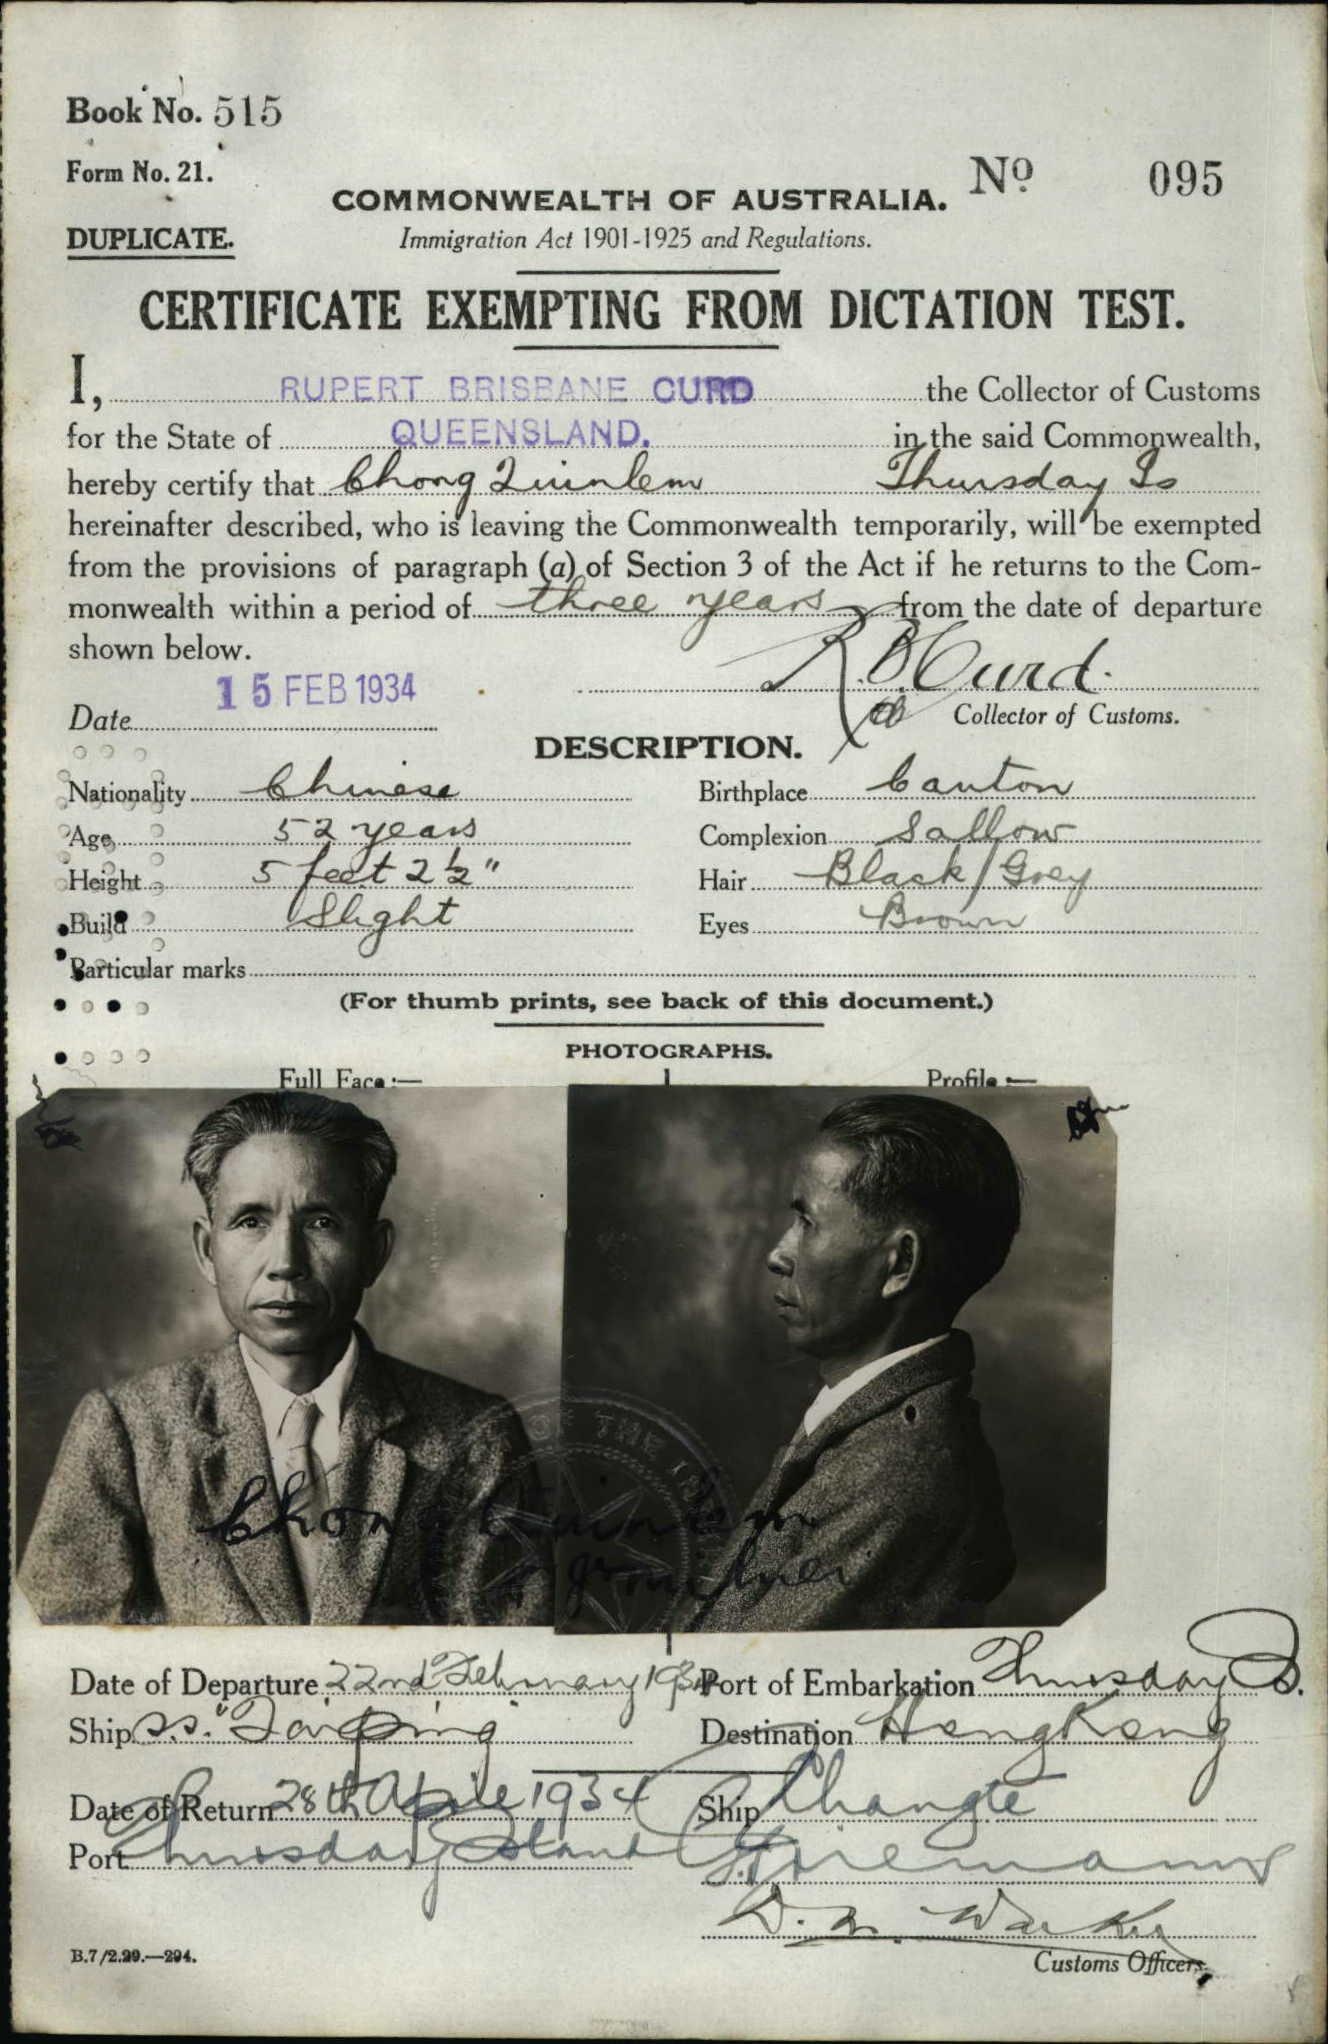 Book No. 515
Form No. 21.
No 095
COMMONWEALTH OF AUSTRALIA.
DUPLICATE.
Immigration Act 1901-1925 and Regulations.
CERTIFICATE EXEMPTING FROM DICTATION TEST.
I, RUPERT BRISBANE CURD the Collector of Customs
for the State of QUEENSLAND. in the said Commonwealth,
hereby certify that Chong Quinlem Thursday Is
hereinafter described, who is leaving the Commonwealth temporarily, will be exempted
from the provisions of paragraph (a) of Section 3 of the Act if he returns to the Com-
monwealth within a period of three years from the date of departure
shown below.
R.B. Curd.
15 FEB 1934
Date
Collector of Customs.
DESCRIPTION.
Nationality Chinese Birthplace Canton
Age 52 years Complexion Sallow
Height 5 feet 2 1/2" Hair Black/Grey
Build Slight Eyes Brown
Particular marks
(For thumb prints, see back of this document.)
PHOTOGRAPHS.
Full Face :— Profile :—
OF THE
Chong Quinlem
Date of Departure 22nd February 1934 Port of Embarkation Thursday Is.
Ship s.s. "Taiping" Destination HongKong
Date of Return 28th April 1934 Ship Changte
Port Thursday Island
Customs Officers.
B.7/2.29.—294.